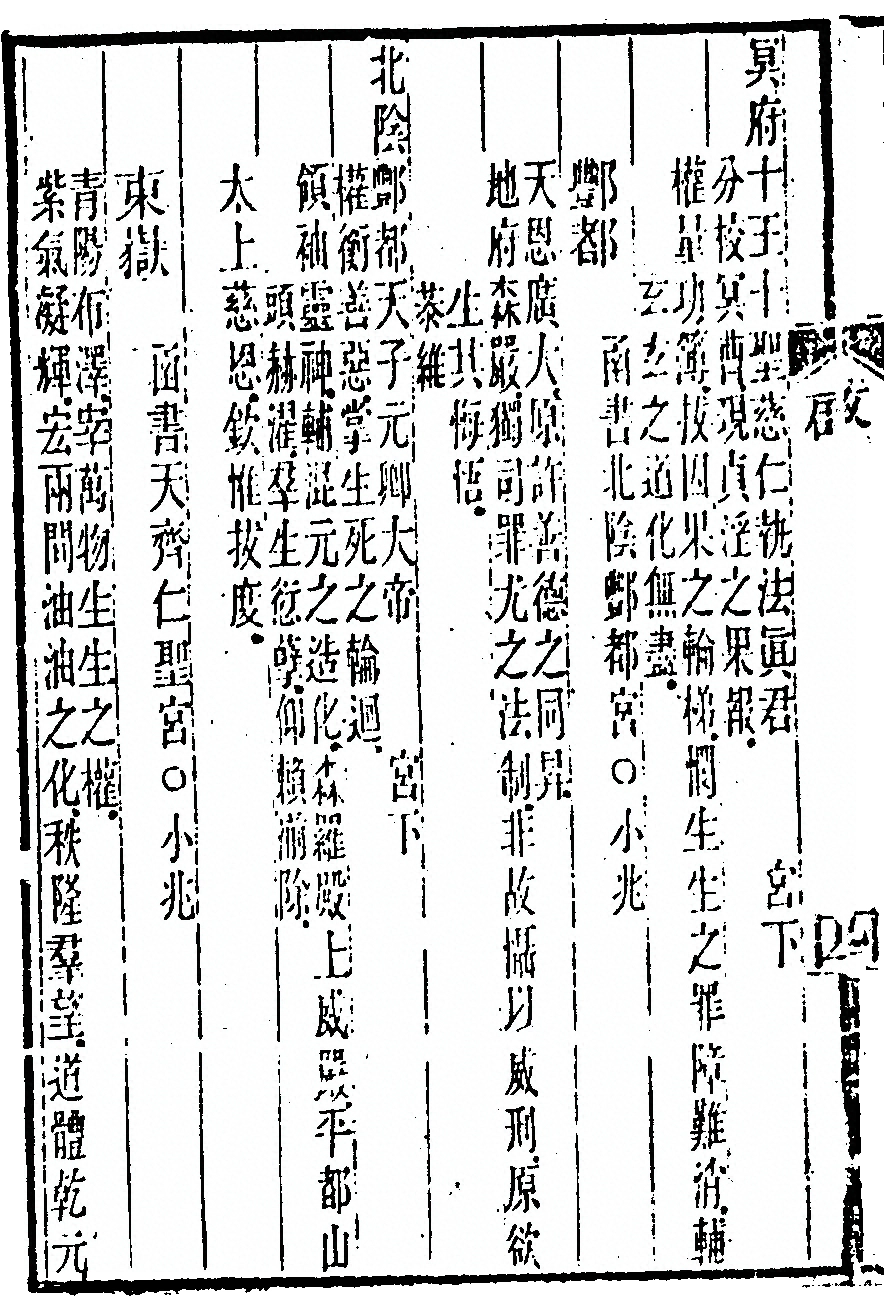 冥府十王十聖慈仁執法眞君　宮下
分校冥曹、現貞淫之果報、
權量功簿、按因果之輪梯、憫生生之罪障難消、輔
玄玄之道化無盡、
函書北陰酆都宮○小兆
酆都
天恩廣大、原許善德之同昇、
地府森嚴、獨司罪尤之法制、非故懾以威刑、原欲
生其悔悟、
恭維
北陰酆都天子元卿大帝　宮下
權衡善惡、掌生死之輪迴、
領袖靈神、輔混元之造化、森羅殿上威嚴、平都山
頭赫濯、羣生愆孽、仰賴湔除、
太上慈恩、欽惟拔度、
函書天齊仁聖宮○小兆
東嶽
青陽布澤、宰萬物生生之權、
紫氣凝輝、宏兩間油油之化、秩隆羣望、道體乾元